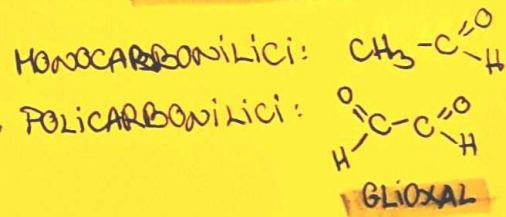 MONOCARBONILICI: CH3-C=O-H
POLICARBONILICI: O=C-C=O H H
GLIOXAL